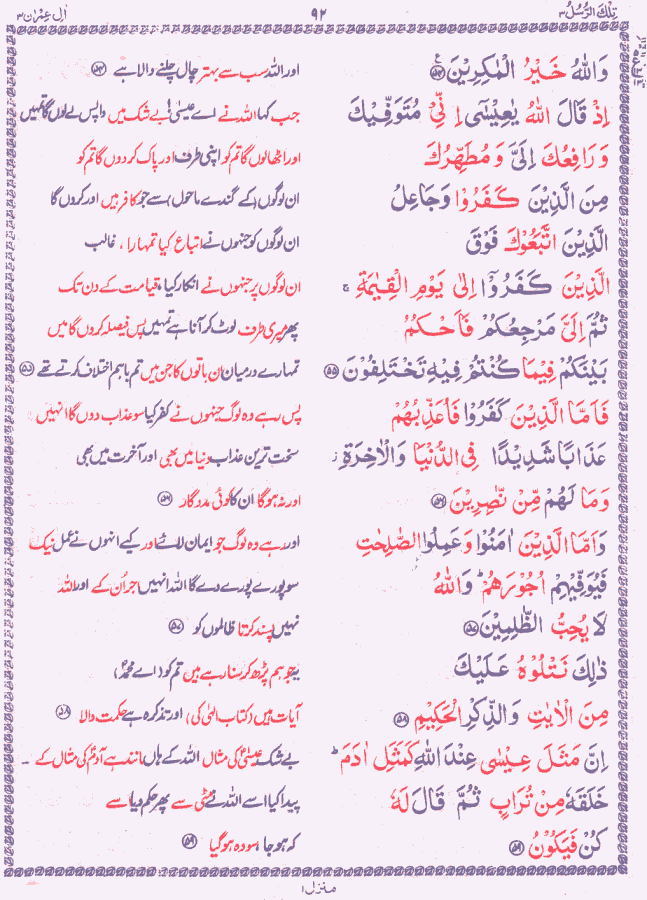 تِلْكَ الرُّسُلُ ۳ ۹۲ اٰلِ عِمْرٰن ۳
وَاللّٰهُ خَيْرُ الْمٰكِرِيْنَ ۵۴ اور اللہ سب سے بہتر چال چلنے والا ہے ۵۴
اِذْ قَالَ اللّٰهُ يٰعِيْسٰٓى اِنِّيْ مُتَوَفِّيْكَ جب کہا اللہ نے اے عیسیٰ بے شک میں واپس لے لوں گا تمہیں
وَرَافِعُكَ اِلَيَّ وَمُطَهِّرُكَ اور اٹھا لوں گا تم کو اپنی طرف اور پاک کر دوں گا تم کو
مِنَ الَّذِيْنَ كَفَرُوْا وَجَاعِلُ ان لوگوں (کے گندے ماحول) سے جو کافر ہیں اور کروں گا
الَّذِيْنَ اتَّبَعُوْكَ فَوْقَ ان لوگوں کو جنہوں نے اتباع کیا تمہارا، غالب
الَّذِيْنَ كَفَرُوْٓا اِلٰى يَوْمِ الْقِيٰمَةِ ۚ ان لوگوں پر جنہوں نے انکار کیا، قیامت کے دن تک
ثُمَّ اِلَيَّ مَرْجِعُكُمْ فَاَحْكُمُ پھر میری طرف لوٹ کر آنا ہے تمہیں پس فیصلہ کروں گا میں
بَيْنَكُمْ فِيْمَا كُنْتُمْ فِيْهِ تَخْتَلِفُوْنَ ۵۵ تمہارے درمیان ان باتوں کا جن میں تم باہم اختلاف کرتے تھے ۵۵
فَاَمَّا الَّذِيْنَ كَفَرُوْا فَاُعَذِّبُهُمْ پس رہے وہ لوگ جنہوں نے کفر کیا سو عذاب دوں گا انہیں
عَذَابًا شَدِيْدًا فِي الدُّنْيَا وَالْاٰخِرَةِ ز سخت ترین عذاب دنیا میں بھی اور آخرت میں بھی
وَمَا لَهُمْ مِّنْ نّٰصِرِيْنَ ۵۶ اور نہ ہوگا ان کا کوئی مددگار ۵۶
وَاَمَّا الَّذِيْنَ اٰمَنُوْا وَعَمِلُوا الصّٰلِحٰتِ اور رہے وہ لوگ جو ایمان لائے اور کیے انہوں نے عمل نیک
فَيُوَفِّيْهِمْ اُجُوْرَهُمْ ؕ وَاللّٰهُ سو پورے پورے دے گا اللہ انہیں اجر اُن کے اور اللہ
لَا يُحِبُّ الظّٰلِمِيْنَ ۵۷ نہیں پسند کرتا ظالموں کو ۵۷
ذٰلِكَ نَتْلُوْهُ عَلَيْكَ یہ جو ہم پڑھ کر سنا رہے ہیں تم کو (اے محمدؐ)
مِنَ الْاٰيٰتِ وَالذِّكْرِ الْحَكِيْمِ ۵۸ آیات ہیں (کتاب الٰہی کی) اور تذکرہ ہے حکمت والا ۵۸
اِنَّ مَثَلَ عِيْسٰى عِنْدَ اللّٰهِ كَمَثَلِ اٰدَمَ ؕ بے شک عیسیٰؑ کی مثال اللہ کے ہاں مانند ہے آدمؑ کی مثال کے ۔
خَلَقَهٗ مِنْ تُرَابٍ ثُمَّ قَالَ لَهٗ پیدا کیا اسے اللہ نے مٹی سے پھر حکم دیا اسے
كُنْ فَيَكُوْنُ ۵۹ کہ ہو جا، سو وہ ہو گیا ۵۹
منزل ۱